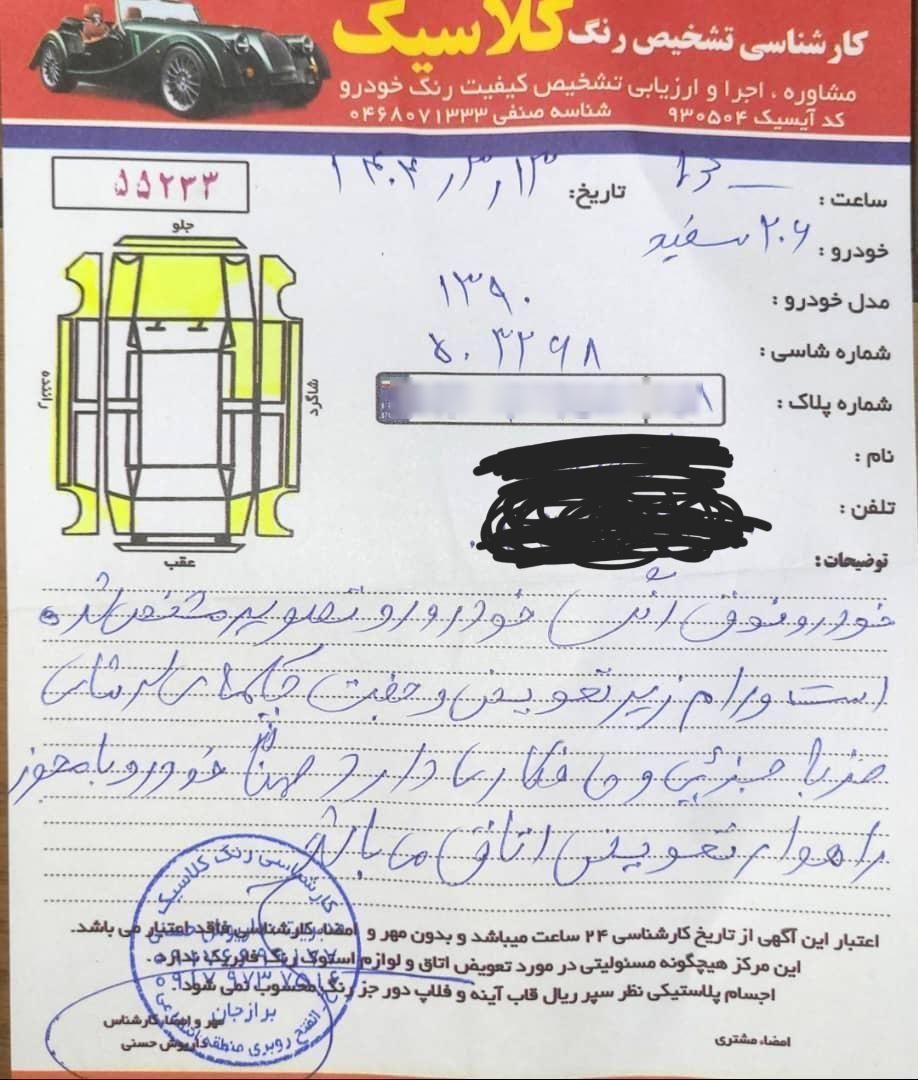 کارشناسی تشخیص رنگ کلاسیک
مشاوره ، اجرا و ارزیابی تشخیص کیفیت رنگ خودرو
کد آیسیک ۹۳۰۵۰۴ شناسه صنفی ۰۴۶۸۰۷۱۳۳۳
۵۵۲۳۳
ساعت : ۱۶
تاریخ: ۱۴۰۴,۳,۱۳
خودرو : ۲۰۶ سفید
مدل خودرو : ۱۳۹۰
شماره شاسی : ۵۰۳۲۶۸
شماره پلاک :
نام :
تلفن :
جلو
راننده
شاگرد
عقب
توضیحات:
خودرو فوق رنگ خودرو رو تصویر مشخص شده
است ورام زیر تعویض و جفت جکهای سرشاسی
ضربا جزئی و صافکاریها دارد ضمناً خودرو با مجوز
راهوار تعویض اتاق می باشد
اعتبار این آگهی از تاریخ کارشناسی ۲۴ ساعت میباشد و بدون مهر و امضاء کارشناسی فاقد اعتبار می باشد.
این مرکز هیچگونه مسئولیتی در مورد تعویض اتاق و لوازم استوک رنگ فابریک ندارد.
اجسام پلاستیکی نظر سپر ریال قاب آینه و فلاپ دور جز رنگ محسوب نمی شود
مهر و امضاء کارشناس
داریوش حسنی
امضاء مشتری
کارشناسی رنگ کلاسیک
برازجان